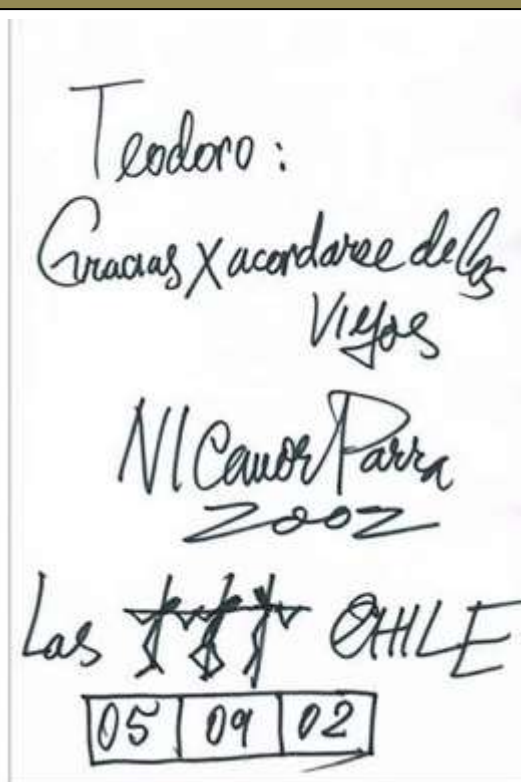 Teodoro:
Gracias X acordarse de los
Viejos
NICanor Parra
2002
Las CHILE
05 09 02